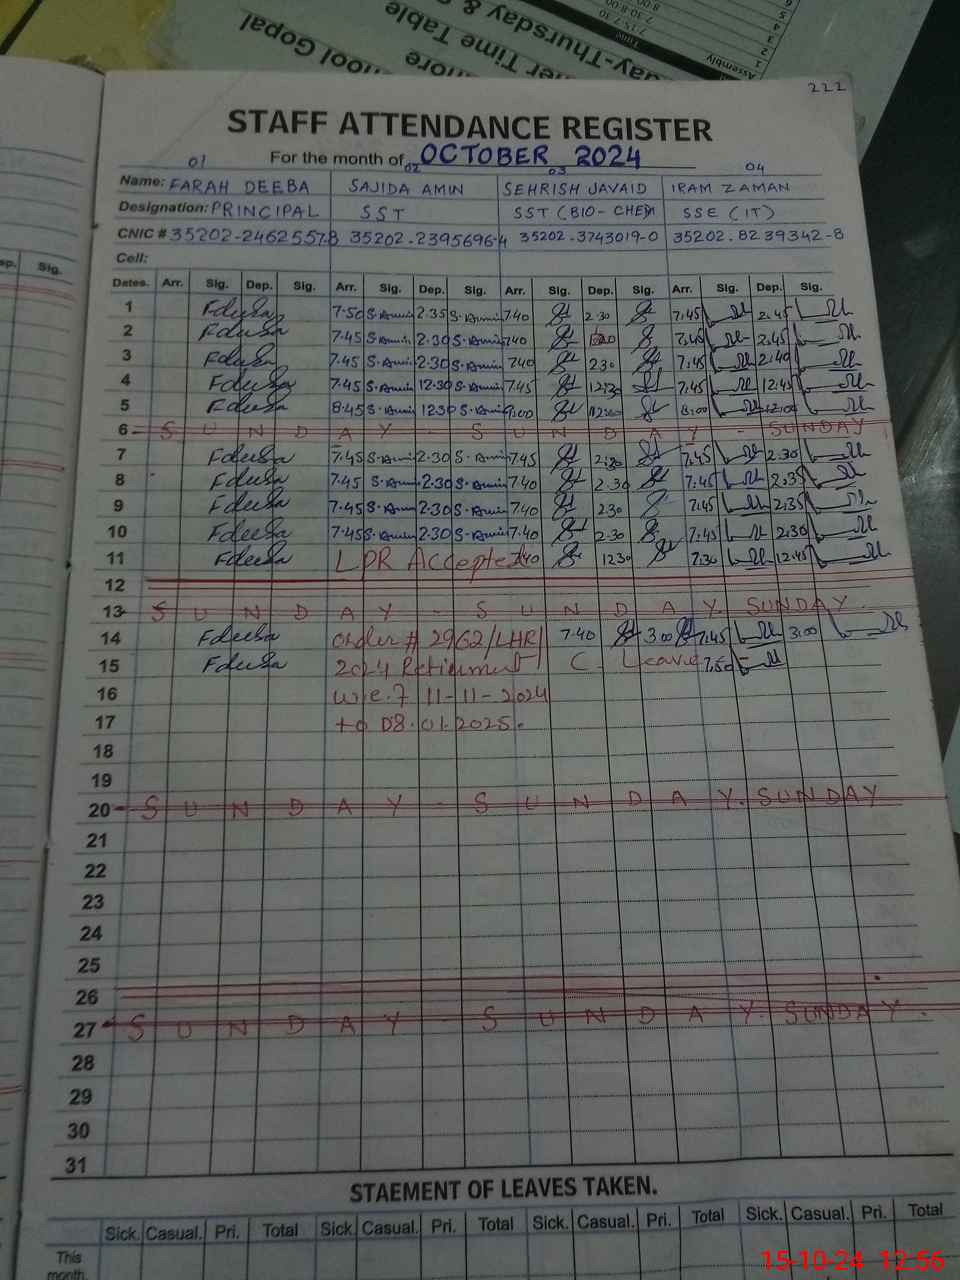 222
STAFF ATTENDANCE REGISTER
For the month of OCTOBER 2024
01 02 03 04
Name: FARAH DEEBA SAJIDA AMIN SEHRISH JAVAID IRAM ZAMAN
Designation: PRINCIPAL SST SST (BIO-CHEM) SSE (IT)
CNIC # 35202-2462557-8 35202-2395696-4 35202-3743019-0 35202-8239342-8
Cell:
Dates. Arr. Sig. Dep. Sig. Arr. Sig. Dep. Sig. Arr. Sig. Dep. Sig. Arr. Sig. Dep. Sig.
1 7.50 S.Amin 2.35 S.Amin 7.40 2.30 7.45 2.45
2 7.45 S.Amin 2.30 S.Amin 7.40 7.45 2.45
3 7.45 S.Amin 2.30 S.Amin 7.40 2.30 7.45 2.40
4 7.45 S.Amin 12.30 S.Amin 7.45 12.30 7.45 12.45
5 8.45 S.Amin 12.30 S.Amin 9.00 12.00 8.00 12.00
6 SUNDAY - SUNDAY - SUNDAY
7 7.45 S.Amin 2.30 S.Amin 7.45 2.30 7.45 2.30
8 7.45 S.Amin 2.30 S.Amin 7.40 2.30 7.45 2.35
9 7.45 S.Amin 2.30 S.Amin 7.40 2.30 7.45 2.35
10 7.45 S.Amin 2.30 S.Amin 7.40 2.30 7.45 2.30
11 LPR Accepted 7.40 12.30 7.30 12.45
12
13 SUNDAY - SUNDAY - SUNDAY
14 order # 2962/LHR/ 7.40 3.00 7.45 3.00
15 2024 Retirement C. Leave 7.50
16 w.e.f 11-11-2024
17 to 08.01.2025.
18
19
20 SUNDAY - SUNDAY. SUNDAY
21
22
23
24
25
26
27 SUNDAY - SUNDAY. SUNDAY.
28
29
30
31
STAEMENT OF LEAVES TAKEN.
Sick. Casual. Pri. Total Sick. Casual. Pri. Total Sick. Casual. Pri. Total Sick. Casual. Pri. Total
This
month
15-10-24 12:56